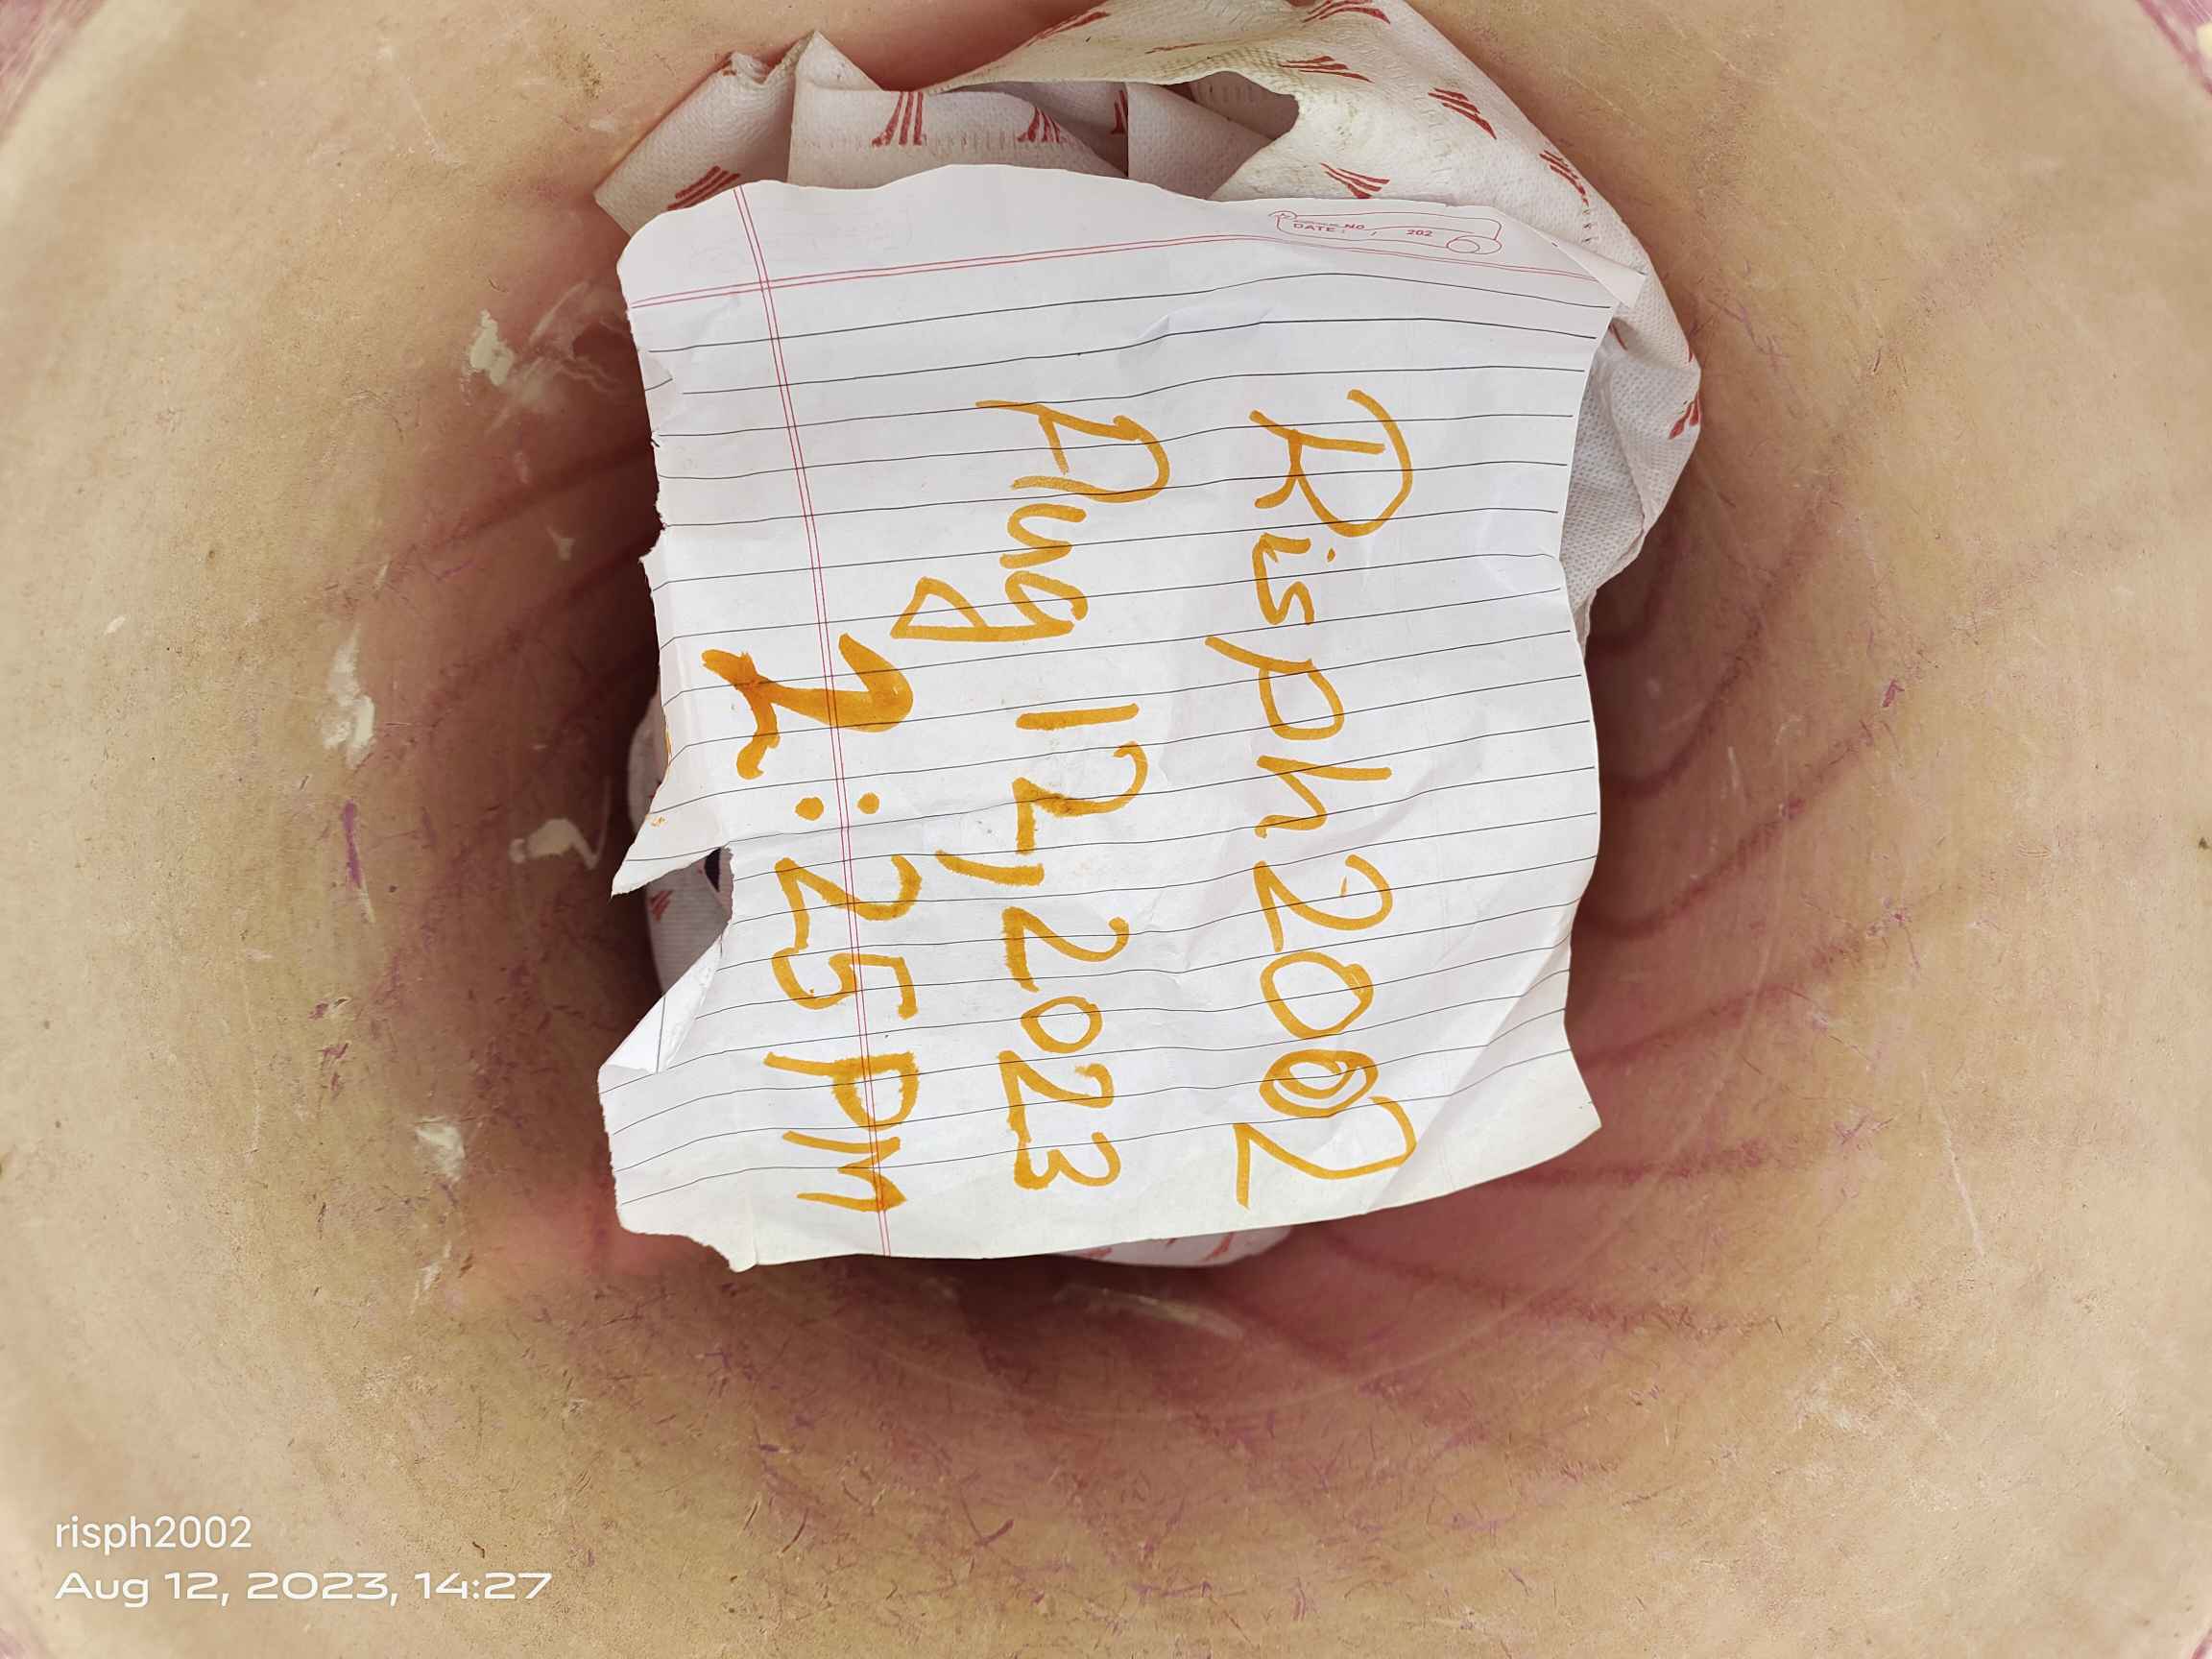 Risph2002
Aug 12, 2023
2:25 PM
DATE: NO / 202
risph2002
Aug 12, 2023, 14:27